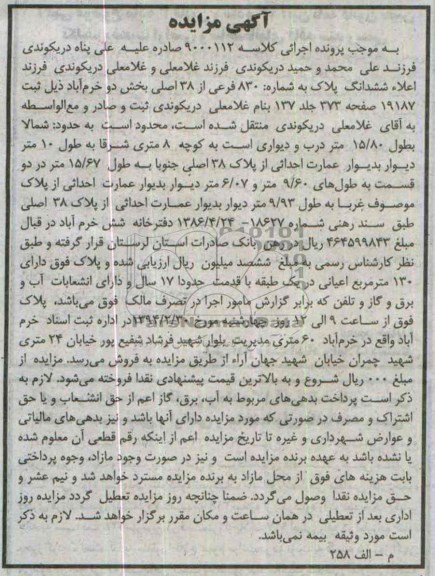 آگهی مزایده
به موجب پرونده اجرائی کلاسه ۹۰۰۰۱۱۲ صادره علیه علی پناه دریکوندی
فرزند علی محمد و حمید دریکوندی فرزند غلامعلی و غلامعلی دریکوندی فرزند
اعلاء ششدانگ پلاک به شماره: ۸۳۰ فرعی از ۳۸ اصلی بخش دو خرم‌آباد ذیل ثبت
۱۹۱۸۷ صفحه ۳۷۳ جلد ۱۳۷ بنام غلامعلی دریکوندی ثبت و صادر و مع‌الواسطه
به آقای غلامعلی دریکوندی منتقل شده است، محدود است به حدود: شمالا
بطول ۱۵/۸۰ متر درب و دیواری است به کوچه ۸ متری شرقا به طول ۱۰ متر
دیوار بدیوار عمارت احداثی از پلاک ۳۸ اصلی جنوبا به طول ۱۵/۶۷ متر در دو
قسمت به طول‌های ۹/۶۰ متر و ۶/۰۷ متر دیوار بدیوار عمارت احداثی از پلاک
موصوف غربا به طول ۹/۹۳ متر دیوار بدیوار عمارت احداثی از پلاک ۳۸ اصلی
طبق سند رهنی شماره ۱۸۶۲۷– ۱۳۸۶/۴/۲۴ دفترخانه شش خرم آباد در قبال
مبلغ ۴۶۴۵۹۹۸۴۳ ریال در رهن بانک صادرات استان لرستان قرار گرفته و طبق
نظر کارشناس رسمی به مبلغ ششصد میلیون ریال ارزیابی شده و پلاک فوق دارای
۱۳۰ مترمربع اعیانی در یک طبقه با قدمت حدودا ۱۷ سال و دارای انشعابات آب و
برق و گاز و تلفن که برابر گزارش مامور اجرا در تصرف مالک فوق می‌باشد، پلاک
فوق از ساعت ۹ الی ۱۲ روز چهارشنبه مورخ ۱۳۹۴/۲/۳۰ در اداره ثبت اسناد خرم
آباد واقع در خرم‌آباد ۶۰ متری مدیریت بلوار شهید فرشاد شفیع پور خیابان ۲۴ متری
شهید چمران خیابان شهید جهان آراء از طریق مزایده به فروش می‌رسد. مزایده از
مبلغ ۰۰۰ ریال شروع و به بالاترین قیمت پیشنهادی نقدا فروخته می‌شود. لازم به
ذکر است پرداخت بدهی‌های مربوط به آب، برق، گاز اعم از حق انشعاب و یا حق
اشتراک و مصرف در صورتی که مورد مزایده دارای آنها باشد و نیز بدهی‌های مالیاتی
و عوارض شهرداری و غیره تا تاریخ مزایده اعم از اینکه رقم قطعی آن معلوم شده
یا نشده باشد به عهده برنده مزایده است و نیز در صورت وجود مازاد، وجوه پرداختی
بابت هزینه های فوق از محل مازاد به برنده مزایده مسترد خواهد شد و نیم عشر و
حق مزایده نقدا وصول می‌گردد. ضمنا چنانچه روز مزایده تعطیل گردد مزایده روز
اداری بعد از تعطیلی در همان ساعت و مکان مقرر برگزار خواهد شد. لازم به ذکر
است مورد وثیقه بیمه نمی‌باشد.
م – الف ۲۵۸